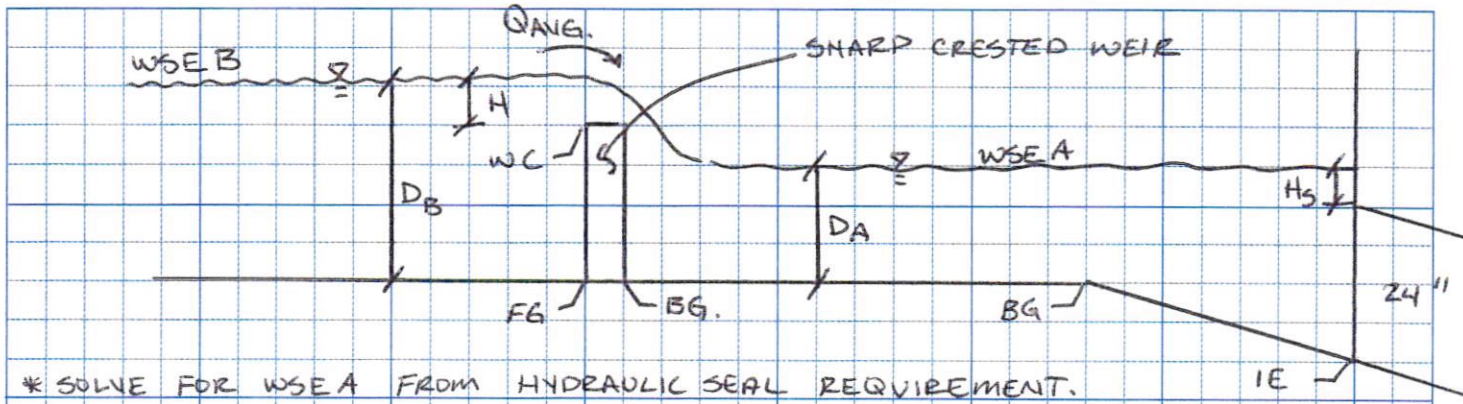 QAVG.
SHARP CRESTED WEIR
WSE B
H
WC
WSE A
HS
DB
DA
24"
FG
BG.
BG
IE
* SOLVE FOR WSE A FROM HYDRAULIC SEAL REQUIREMENT.